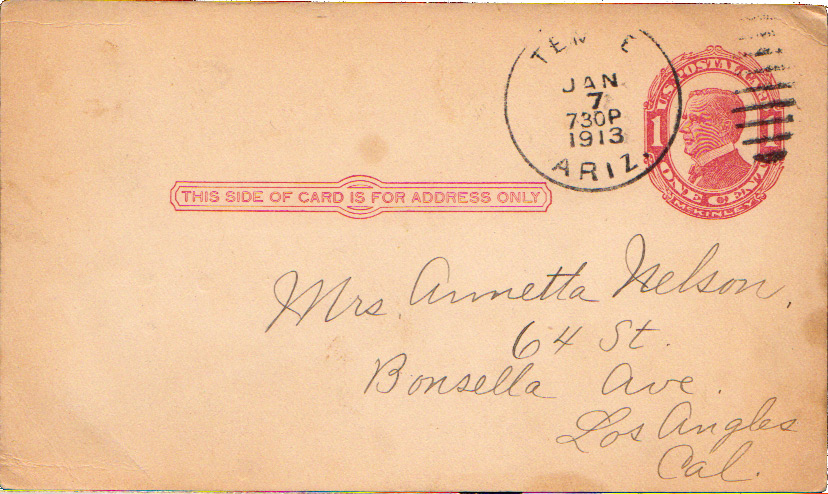 TEM E
JAN
7
730P
1913
ARIZ.
U.S. POSTAL CARD
1 1
ONE CENT
McKINLEY
THIS SIDE OF CARD IS FOR ADDRESS ONLY
Mrs. Annetta Nelson,
64 St.
Bonsella Ave.
Los Angles
Cal.